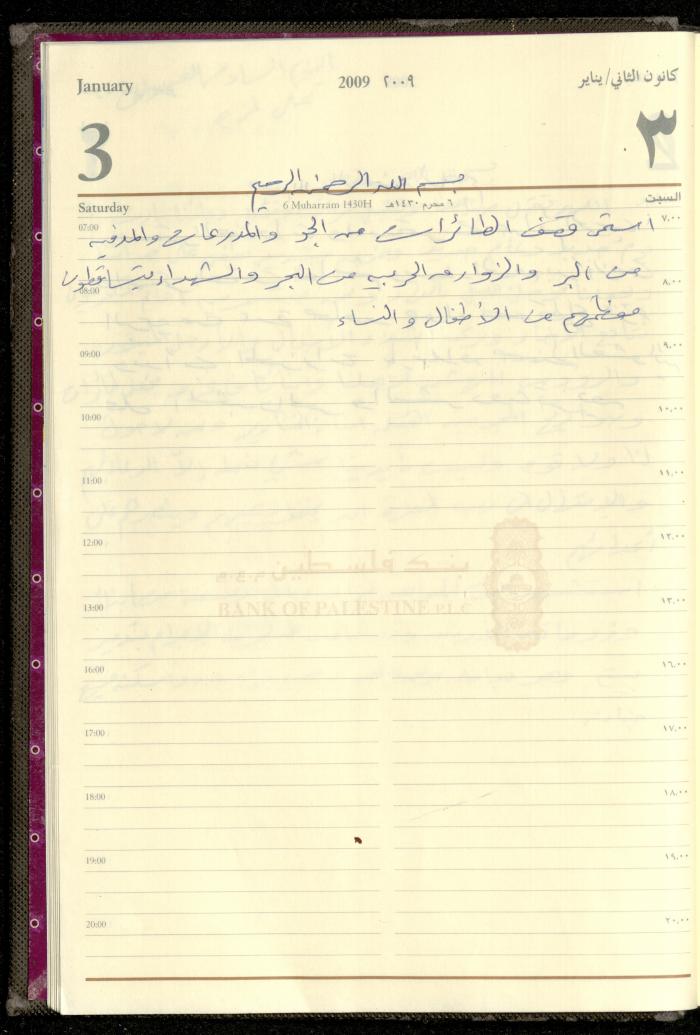 January 2009 ٢٠٠٩ كانون الثاني/يناير
3 ٣
بسم الله الرحمن الرحيم
Saturday 6 Muharram 1430H ٦ محرم ١٤٣٠هـ السبت
07:00 ٧.٠٠
استمر قصف الطائرات من الجو والمدرعات والمدفعيه
من البر والزوارق الحربيه من البحر والشهداء يتساقطون
08:00 ٨.٠٠
معظمهم من الأطفال والنساء
09:00 ٩.٠٠
10:00 ١٠.٠٠
11:00 ١١.٠٠
12:00 ١٢.٠٠
بنك فلسطين م.ع.م
13:00 ١٣.٠٠
BANK OF PALESTINE P.L.C
16:00 ١٦.٠٠
17:00 ١٧.٠٠
18:00 ١٨.٠٠
19:00 ١٩.٠٠
20:00 ٢٠.٠٠